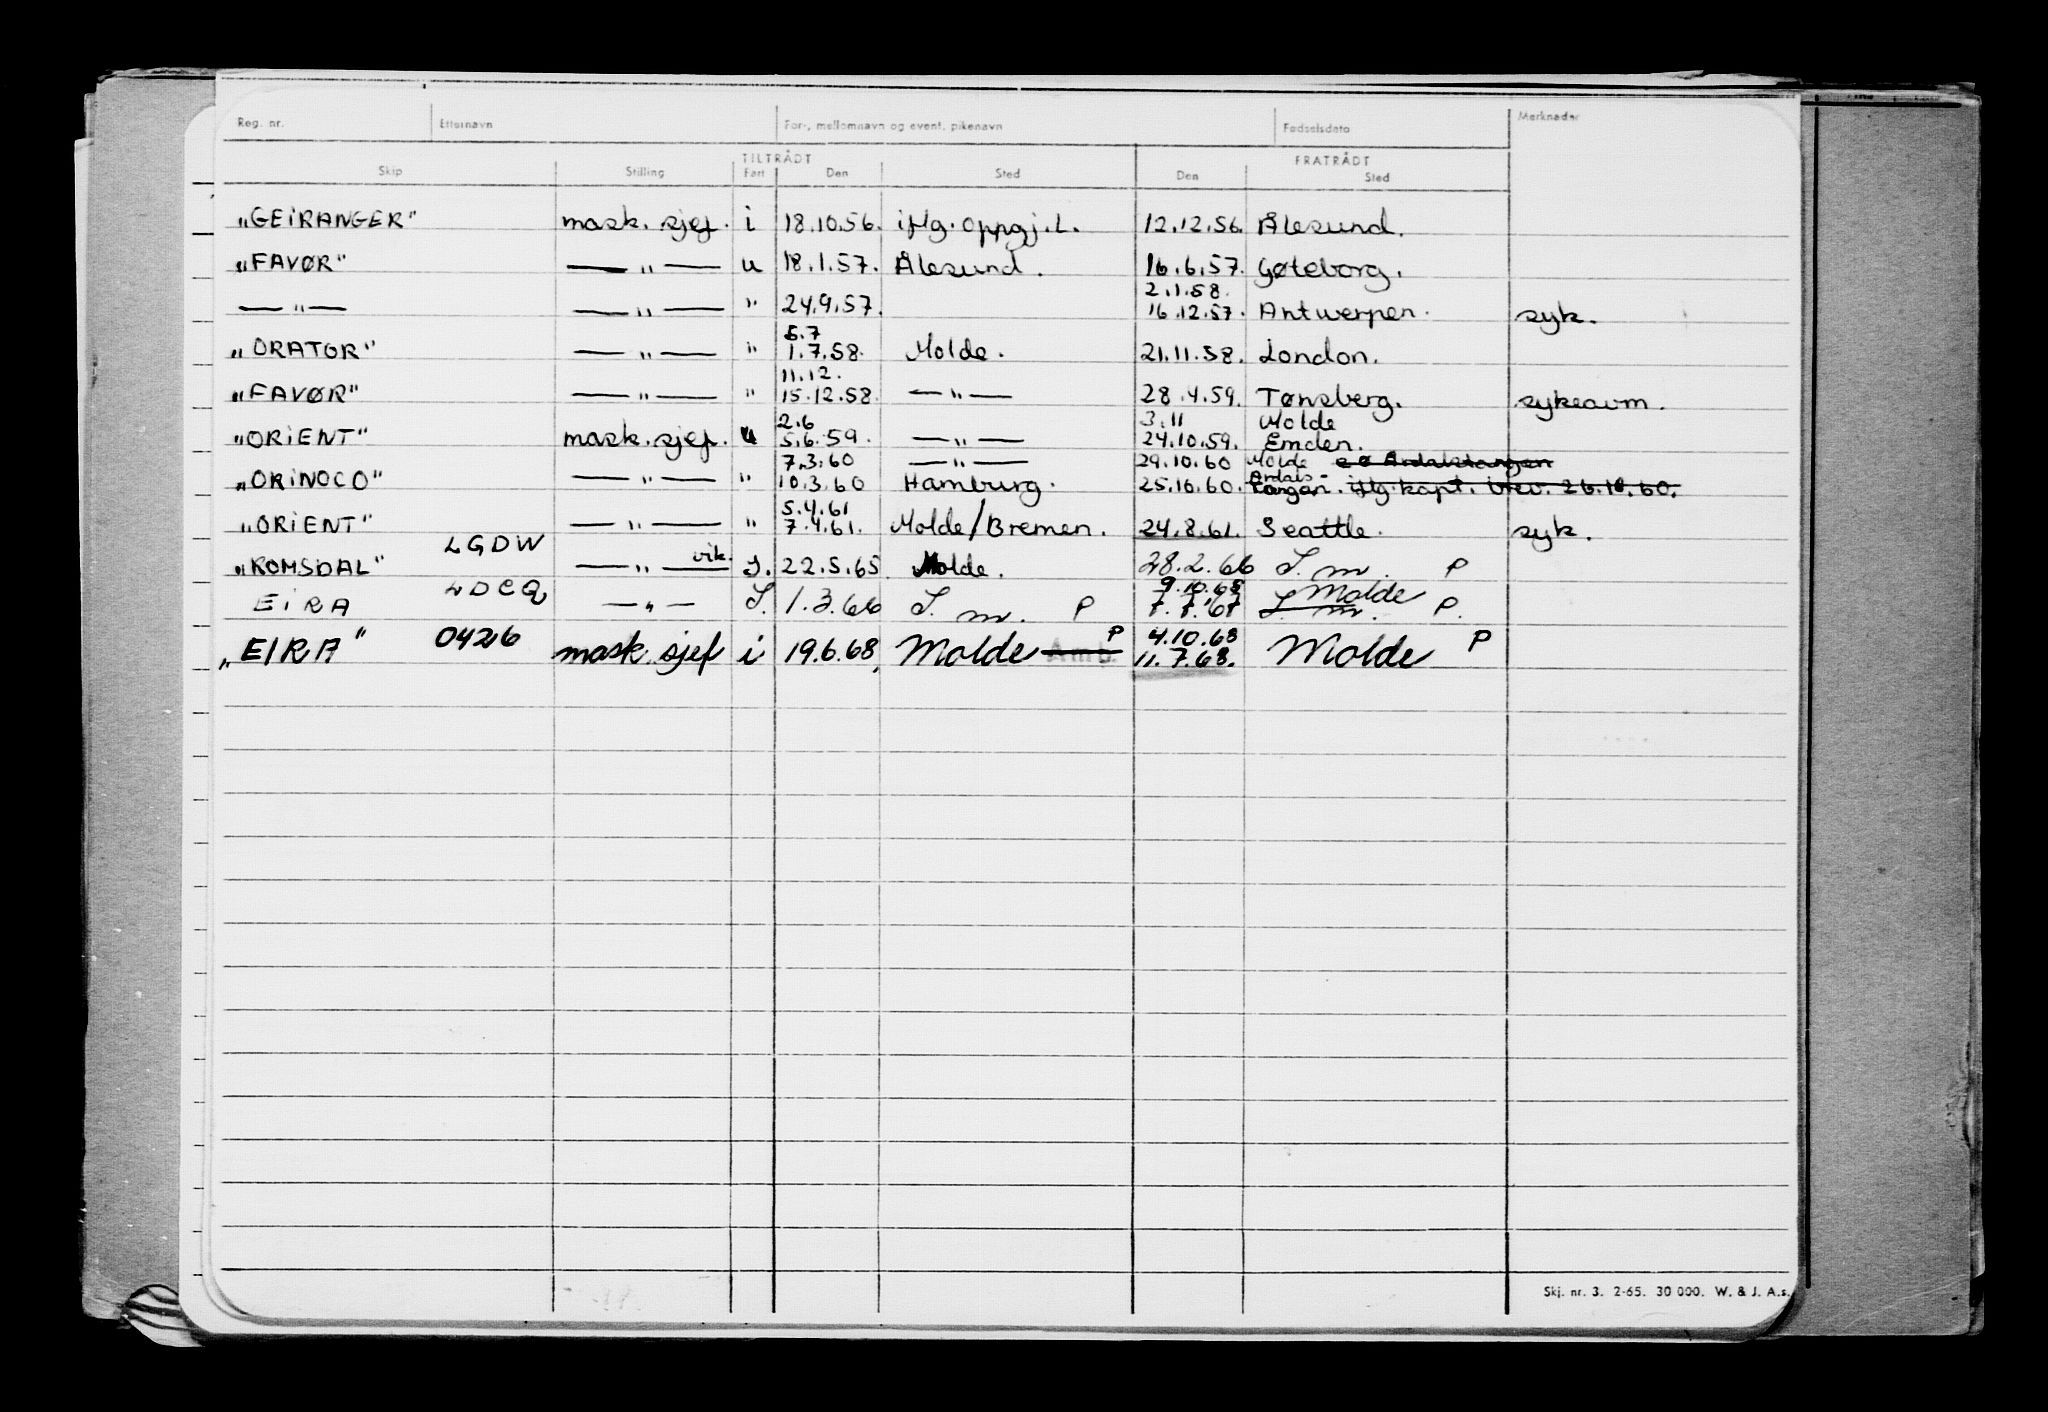 Reg. nr. Etternavn For-, mellomnavn og event. pikenavn Fødselsdato Merknader
TILTRÅDT FRATRÅDT
Skip Stilling Fart Den Sted Den Sted
"GEIRANGER" mask. sjef. i 18.10.56. iflg. oppgj. L. 12.12.56. Ålesund.
"FAVØR" — " — u 18.1.57. Ålesund. 16.6.57. Gøteborg.
2.1.58.
— " — — " — " 24.9.57. 16.12.57. Antwerpen. syk.
5.7
"ORATOR" — " — " 1.7.58. Molde. 21.11.58. London.
11.12.
"FAVØR" — " — " 15.12.58. — " — 28.4.59. Tønsberg. sykeavm.
2.6 3.11 Molde
"ORIENT" mask. sjef. u 5.6.59. — " — 24.10.59. Emden.
7.3.60 — " — 29.10.60 Molde
"ORINOCO" — " — " 10.3.60 Hamburg. 25.10.60. Årdals-tangen. iflg. kapt. brev. 26.10.60.
5.4.61
"ORIENT" — " — " 7.4.61. Molde/Bremen. 24.8.61. Seattle. syk.
"ROMSDAL" LGDW — " — vik. I. 22.5.65 Molde. 28.2.66 S. m. P
9.10.68 Molde
EIRA LDCQ — " — I. 1.3.66 S. m. P 7.7.67 S. m. P.
4.10.68
"EIRA" 0426 mask. sjef i 19.6.68. Molde P 11.7.68. Molde P
Skj. nr. 3. 2-65. 30 000. W. & J. A.s.